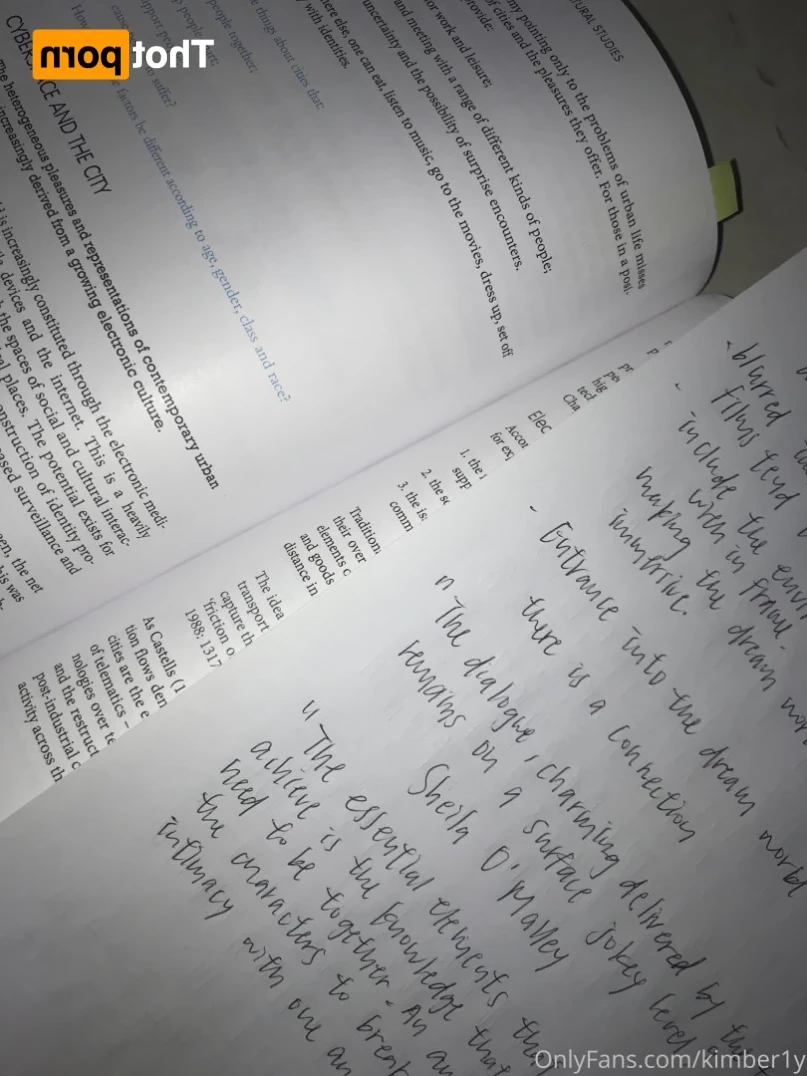 Thot porn
URAL STUDIES
my pointing only to the problems of urban life misses
of cities and the pleasures they offer. For those in a posi-
provide:
or work and leisure;
and meeting with a range of different kinds of people;
uncertainty and the possibility of surprise encounters.
here else, one can eat, listen to music, go to the movies, dress up, set off
with identities.
things about cities that:
people together;
to suffer?
factors be different according to age, gender, class and race?
CYBERSPACE AND THE CITY
The heterogeneous pleasures and representations of contemporary urban
increasingly derived from a growing electronic culture.
is increasingly constituted through the electronic medi-
devices and the internet. This is a heavily
the spaces of social and cultural interac-
places. The potential exists for
construction of identity pro-
ased surveillance and
en, the net
his was
Elec
Accor
for ex
1. the
supp
2. the
3. the is
comm
Tradition
their over
elements
and goods
distance in
The idea
transport
capture th
'friction o
1988: 1317
As Castells (1
tion flows den
cities are the e
of telematics –
nologies over te
and the restruct
post-industrial c
activity across th
- blurred
films tend
- include the
with in frame.
making the dream
immersive.
- Entrance into the dream world
there is a connection
" The dialogue, charming delivered by the
remains on a surface jokey level
Sheila O'Malley
" The essential elements
achieve is the knowledge that
need to be together. An
the characters to break
intimacy with one an
OnlyFans.com/kimber1y